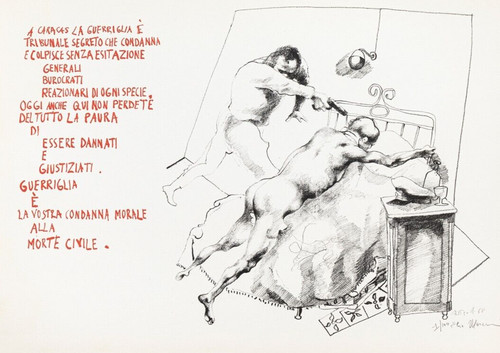 A CARACAS LA GUERRIGLIA È
TRIBUNALE SEGRETO CHE CONDANNA
E COLPISCE SENZA ESITAZIONE
GENERALI
BUROCRATI
REAZIONARI DI OGNI SPECIE.
OGGI ANCHE QUI NON PERDETE
DEL TUTTO LA PAURA
DI
ESSERE DANNATI
E
GIUSTIZIATI.
GUERRIGLIA
È
LA VOSTRA CONDANNA MORALE
ALLA
MORTE CIVILE.